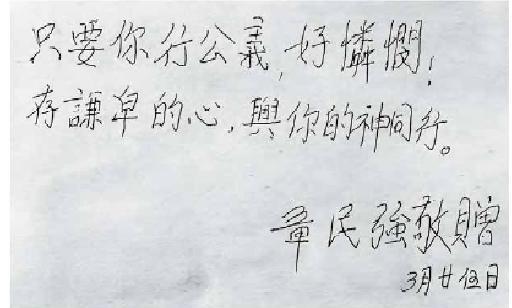 只要你行公義,好憐憫,
存謙卑的心,與你的神同行。
章民強敬贈
3月廿伍日